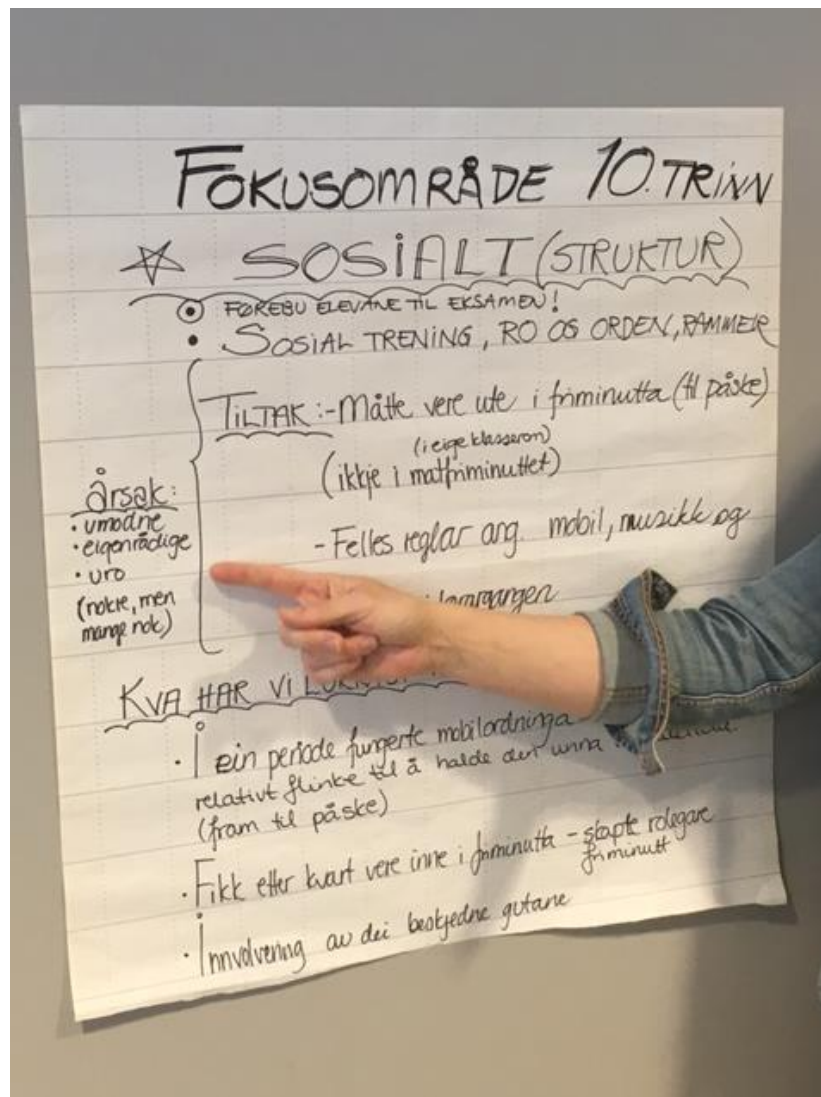 FOKUSOMRÅDE 10. TRINN
SOSIALT (STRUKTUR)
FØREBU ELEVANE TIL EKSAMEN!
• SOSIAL TRENING, RO OG ORDEN, RAMMER
TILTAK: - Måtte vere ute i friminutta (til påske)
(i eige klasserom)
(ikkje i matfriminuttet)
- Felles reglar ang. mobil, musikk og
Årsak:
• umodne
• eigenrådige
• uro
(nokre, men
mange nok)
KVA HAR VI
• I ein periode fungerte mobilordninga
relativt flinke til å halde den unna
(fram til påske)
• Fikk etter kvart vere inne i friminutta - skapte rolegare
friminutt
• Innvolvering av dei beskjedne gutane